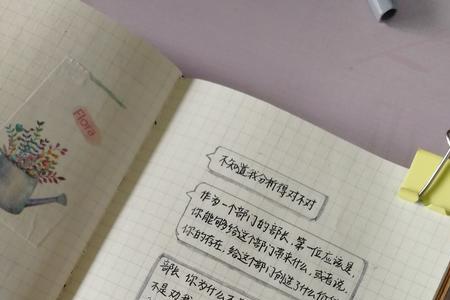 Flora
不知道我分析得对不对
作为一个部门的部长,第一位应该是,
你能够给这个部门带来什么,或者说,
你的存在,给这个部门创造了什么价值
部长 你为什么不
不是劝我